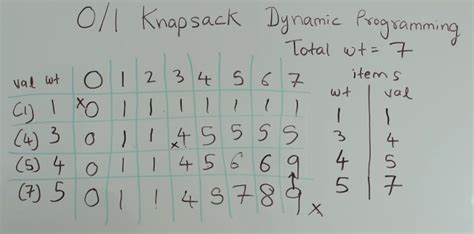 0/1 Knapsack Dynamic Programming
Total wt = 7
val wt 0 1 2 3 4 5 6 7
(1) 1 x0 1 1 1 1 1 1 1
(4) 3 0 1 1 x4 5 5 5 5
(5) 4 0 1 1 4 5 6 6 9
(7) 5 0 1 1 4 5 7 8 9 x
items
wt val
1 1
3 4
4 5
5 7